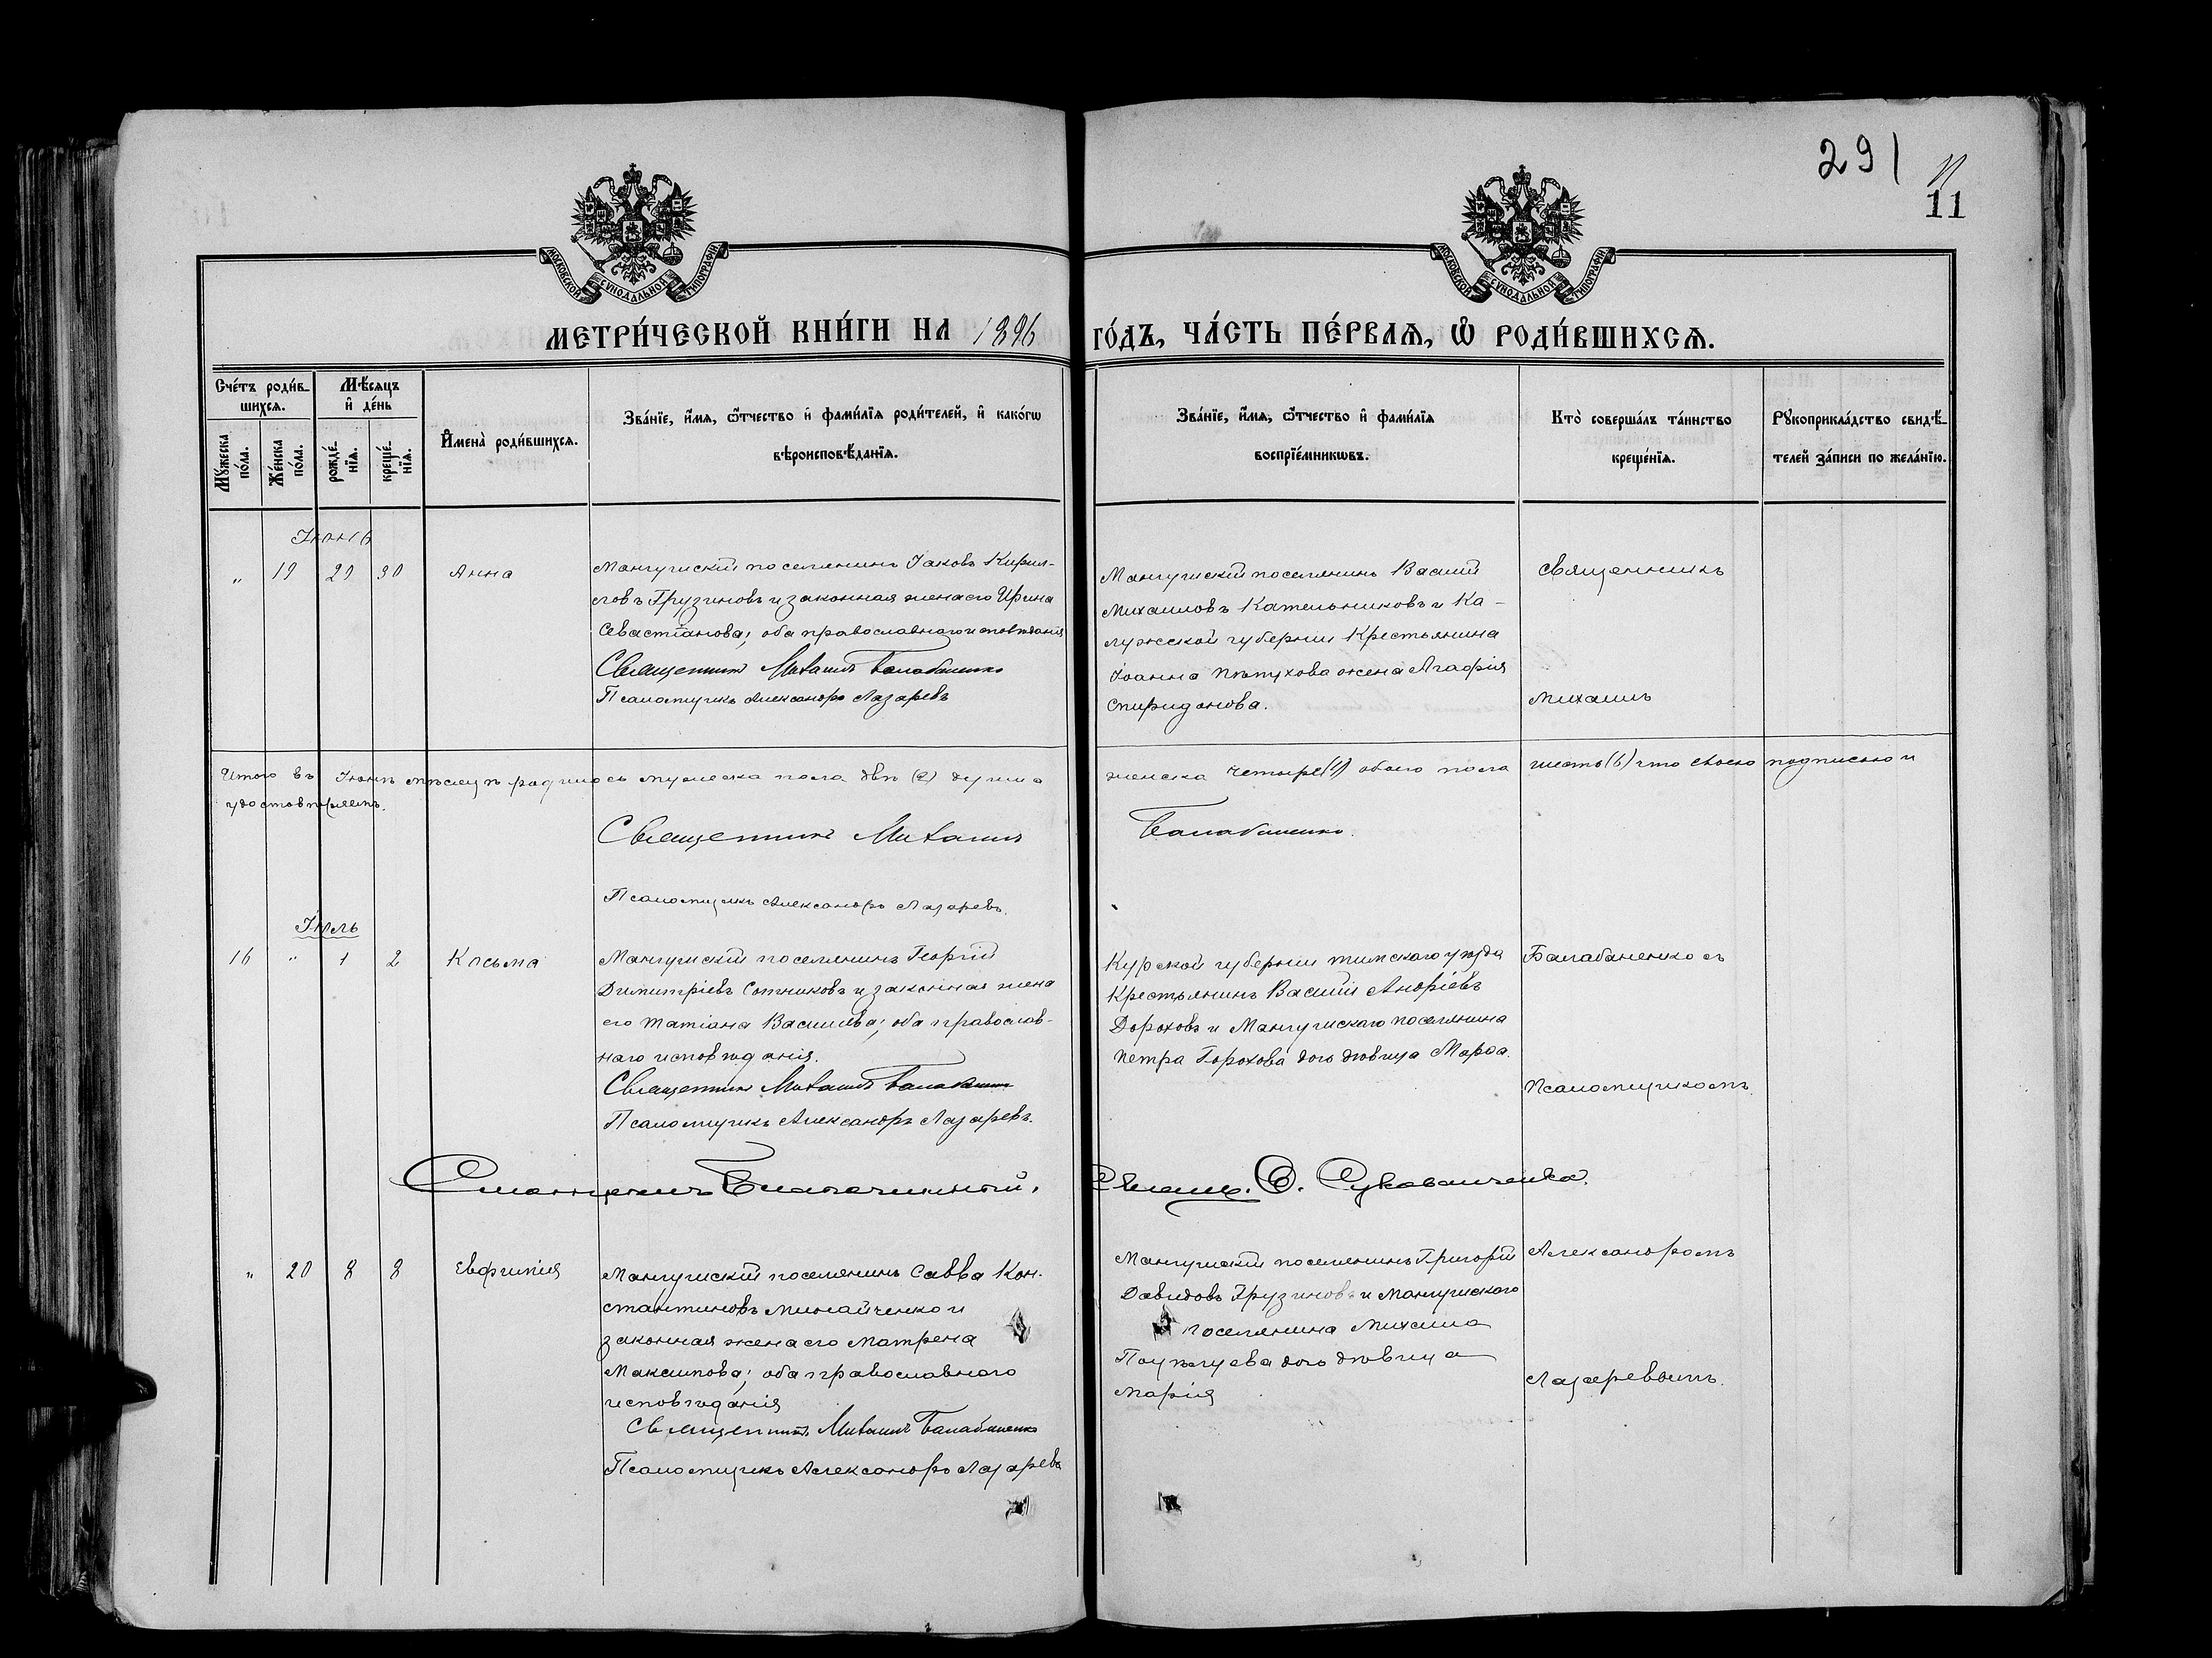 291
11
11
МОСКОВСКОЙ СУНОДАЛЬНОЙ ТИПОГРАФІИ
МОСКОВСКОЙ СУНОДАЛЬНОЙ ТИПОГРАФІИ
МЕТРИ́ЧЕСКОЙ КНИ́ГИ НА 1896 ГО́ДЪ, ЧА́СТЬ ПЕ́РВАѦ, Ѡ҆ РОДИ́ВШИХСѦ.
Сче́тъ роди́в-
шихсѧ.
Мꙋ́жеска по́ла.
Же́нска по́ла.
Мѣ́сѧцъ и҆ де́нь
рожде́-нїѧ.
креще́-нїѧ.
И҆мена̀ роди́вшихсѧ.
Зва́нїе, и҆́мѧ, ѻ҆́тчество и҆ фами́лїѧ роди́телей, и҆ како́гѡ
вѣроисповѣ́данїѧ.
Зва́нїе, и҆́мѧ, ѻ҆́тчество и҆ фами́лїѧ
воспрїе́мникѡвъ.
Кто̀ соверша́лъ та́инство
креще́нїѧ.
Рꙋкоприкла́дство свидѣ́-
телей за́писи по жела́нїю.
Іюнь
" 19 29 30 Анна
Мангушскій поселянинъ Іаковъ Кирил-
ловъ Грузиновъ и законная жена его Ирина
Севастіанова; оба православнаго исповѣданія
Священникъ Михаилъ Балабаненко
Псаломщикъ Александръ Лазаревъ
Мангушскій поселянинъ Василій
Михаиловъ Кательниковъ и Ка-
лужской губерніи Крестьянина
Іоанна Пѣтухова жена Агафія
Спиридонова.
Священникъ
Михаилъ
Итого въ Іюнѣ мѣсяцѣ родилось мужеска пола двѣ (2) души а женска четыре (4) обоего пола шесть (6) что своею подписью и
удостовѣряемъ.
Священникъ Михаилъ Балабаненко.
Псаломщикъ Александръ Лазаревъ.
Іюль
16 " 1 2 Косьма
Мангушскій поселянинъ Георгій
Димитріевъ Сотниковъ и законная жена
его Татіана Васильева; оба православ-
наго исповѣданія.
Священникъ Михаилъ Балабаненко
Псаломщикъ Александръ Лазаревъ.
Курской губерніи Тимскаго уѣзда
Крестьянинъ Василій Андріевъ
Дороховъ и Мангушскаго поселянина
Петра Горохова дочь дѣвица Марѳа.
Балабаненко съ
Псаломщикомъ
Благочинный,
" 20 8 8 Евфимія
Мангушскій поселянинъ Савва Кон-
стантиновъ Минайченко и
законная жена его Матрена
Максимова; оба православнаго
исповѣданія
Священникъ Михаилъ Балабаненко
Псаломщикъ Александръ Лазаревъ
Мангушскій поселянинъ Григорій
Давидовъ Грузиновъ и Мангушскаго
поселянина Михаила
дочь дѣвица
Марія
Александромъ
Лазаревымъ.